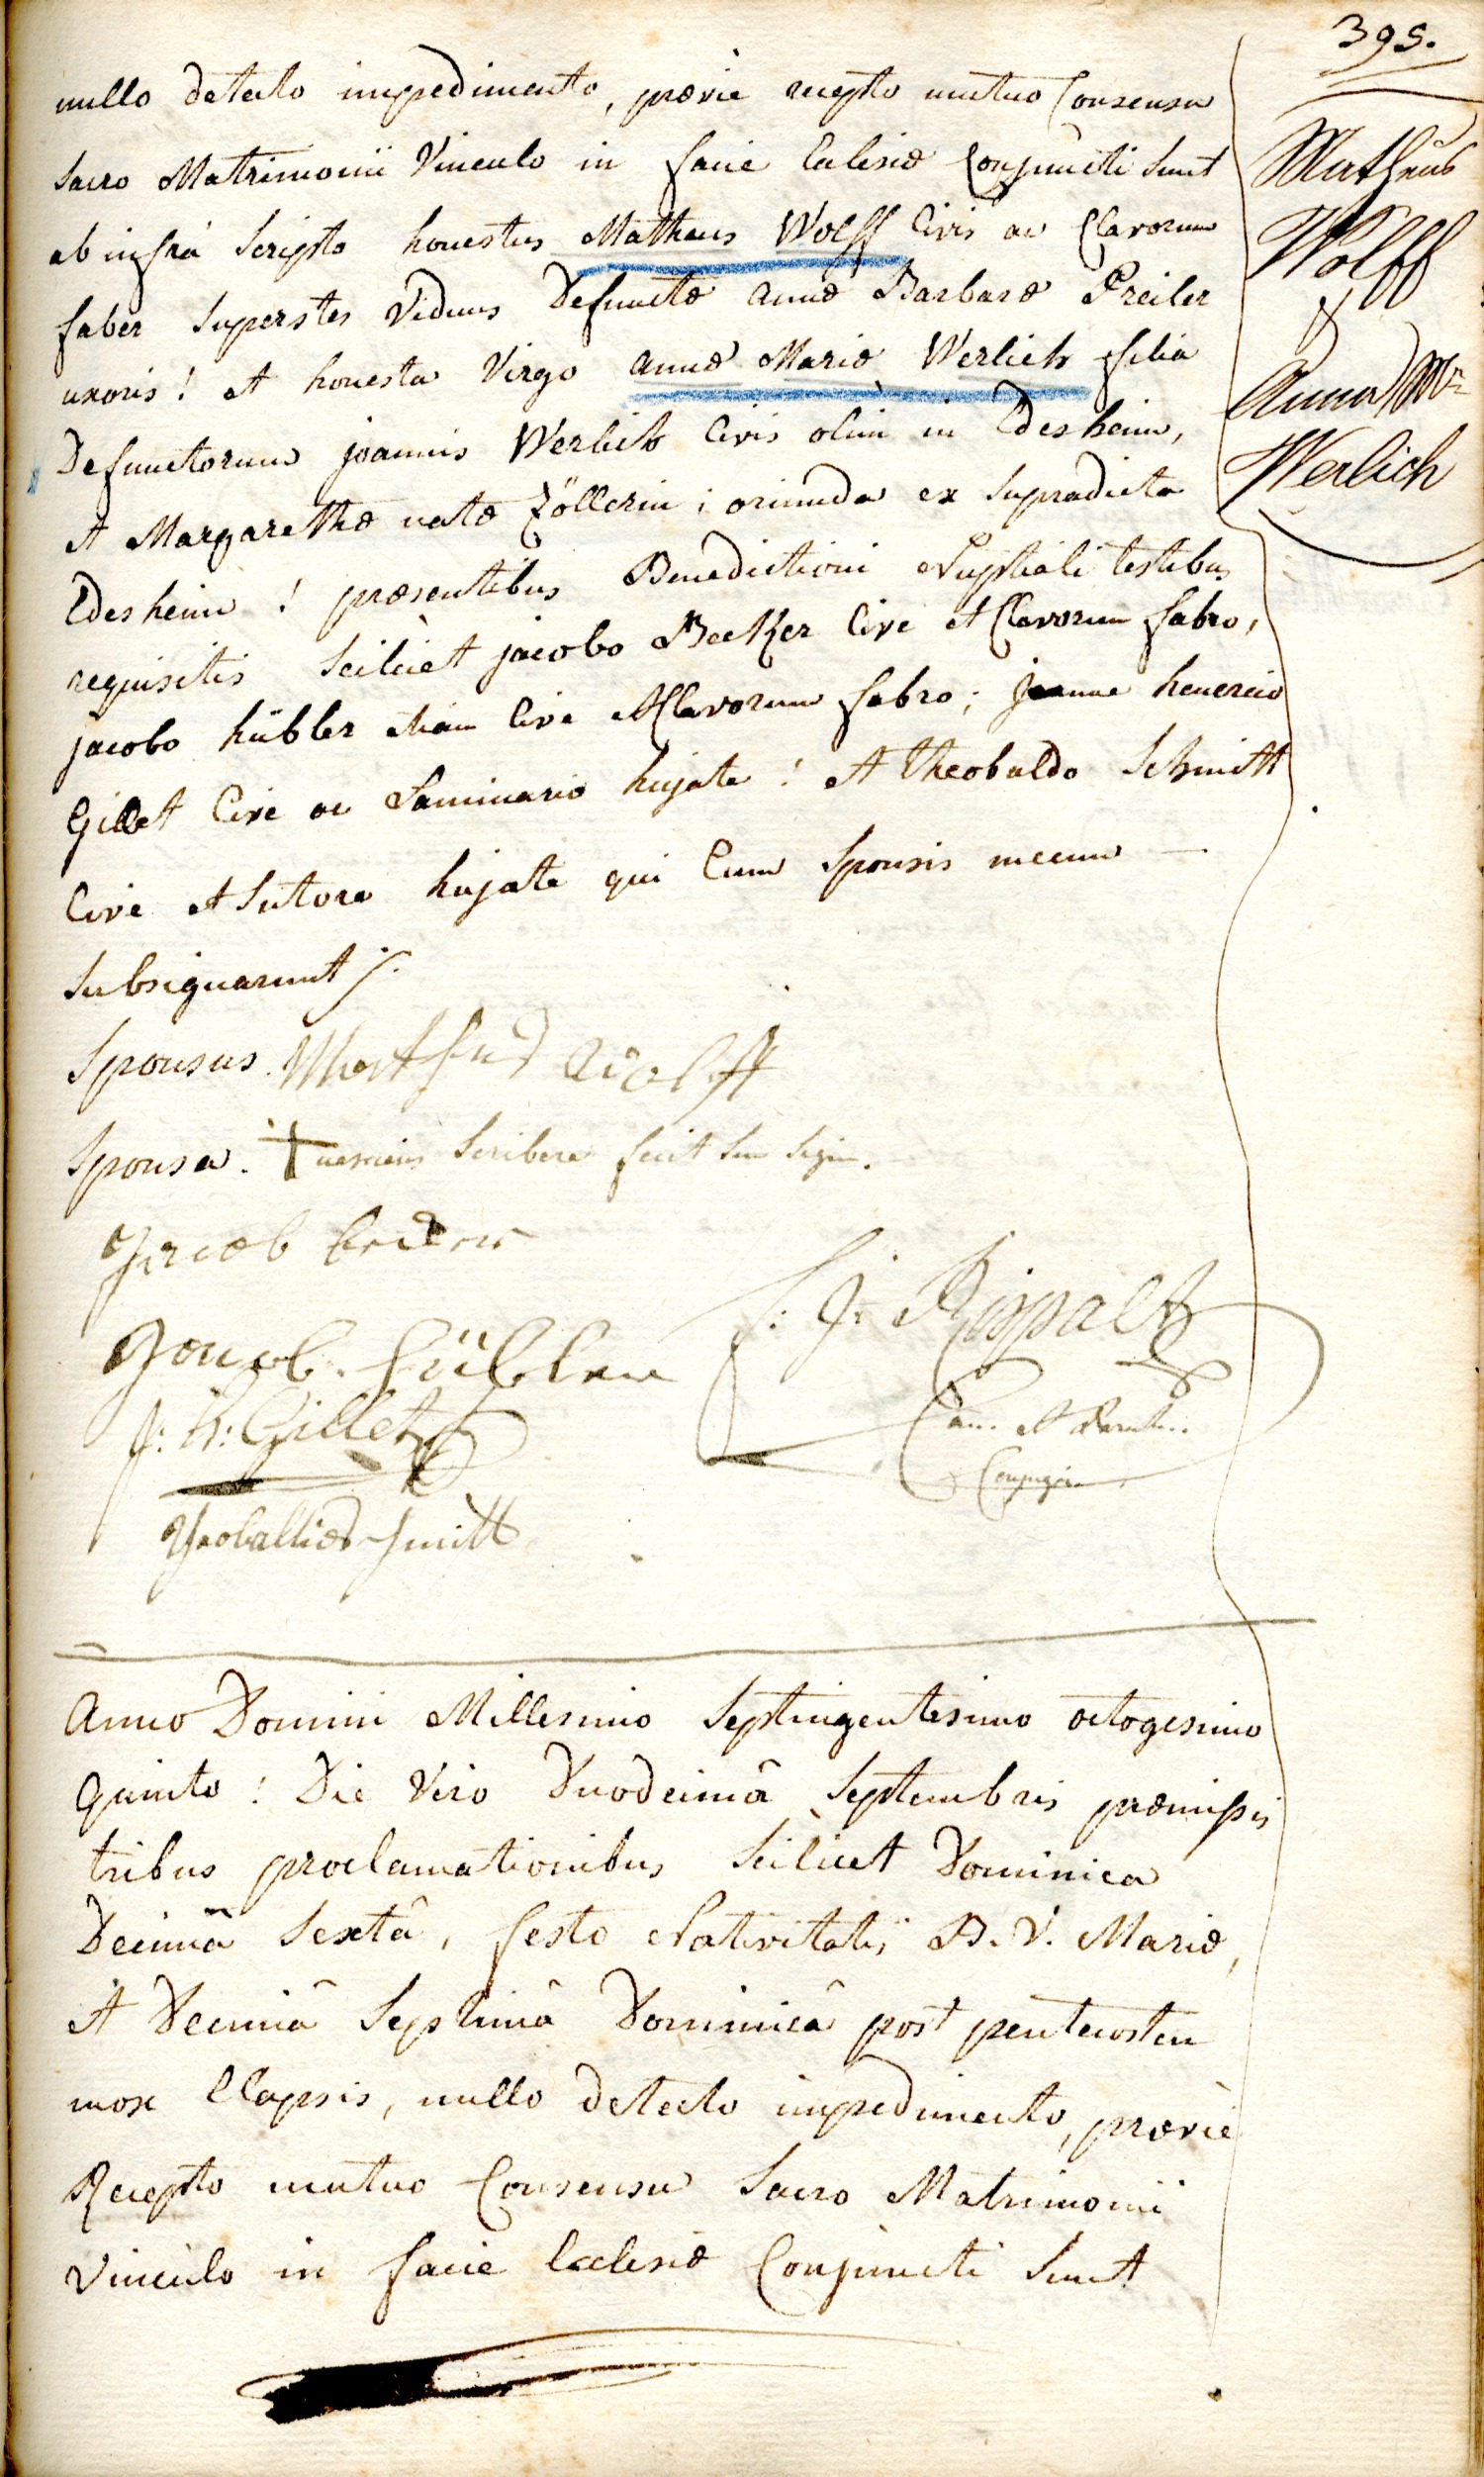 395.
nullo detecto impedimento, prævie recepto mutuo Consensu
Sacro Matrimonii Vinculo in facie Eclesiæ Conjuncti Sunt
ab infra Scripto honestus Matheus Wolff Civis ac Clavorum
faber Superstes Viduus Defunctæ annæ Barbaræ Preiler
uxoris! et honesta Virgo annæ Mariæ Werlich filia
Defunctorum joannis Werlich Civis olim in Edesheim,
et Margarethæ natæ Zöllerin; oriunda ex Supradicta
Edesheim! præsentibus Benedictioni Nuptiali testibus
requisitis Scilicet jacobo Becker Cive et Clavorum fabro,
jacobo hübler etiam Cive et Clavorum fabro; joanne henerico
Gillet Cive ac Laminario hujate! et Theobaldo Schmitt
Cive et Sutore hujate qui Cum Sponsis mecum —
Subsignarunt
Matheus
Wolff
&
Anna Ma
Werlich
Sponsus. Wolff
Sponsa. + nesciens Scribere fecit Suu Sign.
Jacob
Jacob hübler
J: H: Gillet
Smitt
J: Rispalt
Can. et
Anno Domini Millesimo Septingentesimo octogesimo
quinto! Die Vero Duodecimâ Septembris præmissis
tribus proclamationibus Scilicet Dominica
Decimâ Sextâ, festo Nativitatis B. V. Mariæ,
et Decimâ Septimâ Dominicâ post pentecosten
mox Elapsis, nullo detecto impedimento, prævie
Recepto mutuo Consensu Sacro Matrimonii
Vinculo in facie Ecclesiæ Conjuncti Sunt